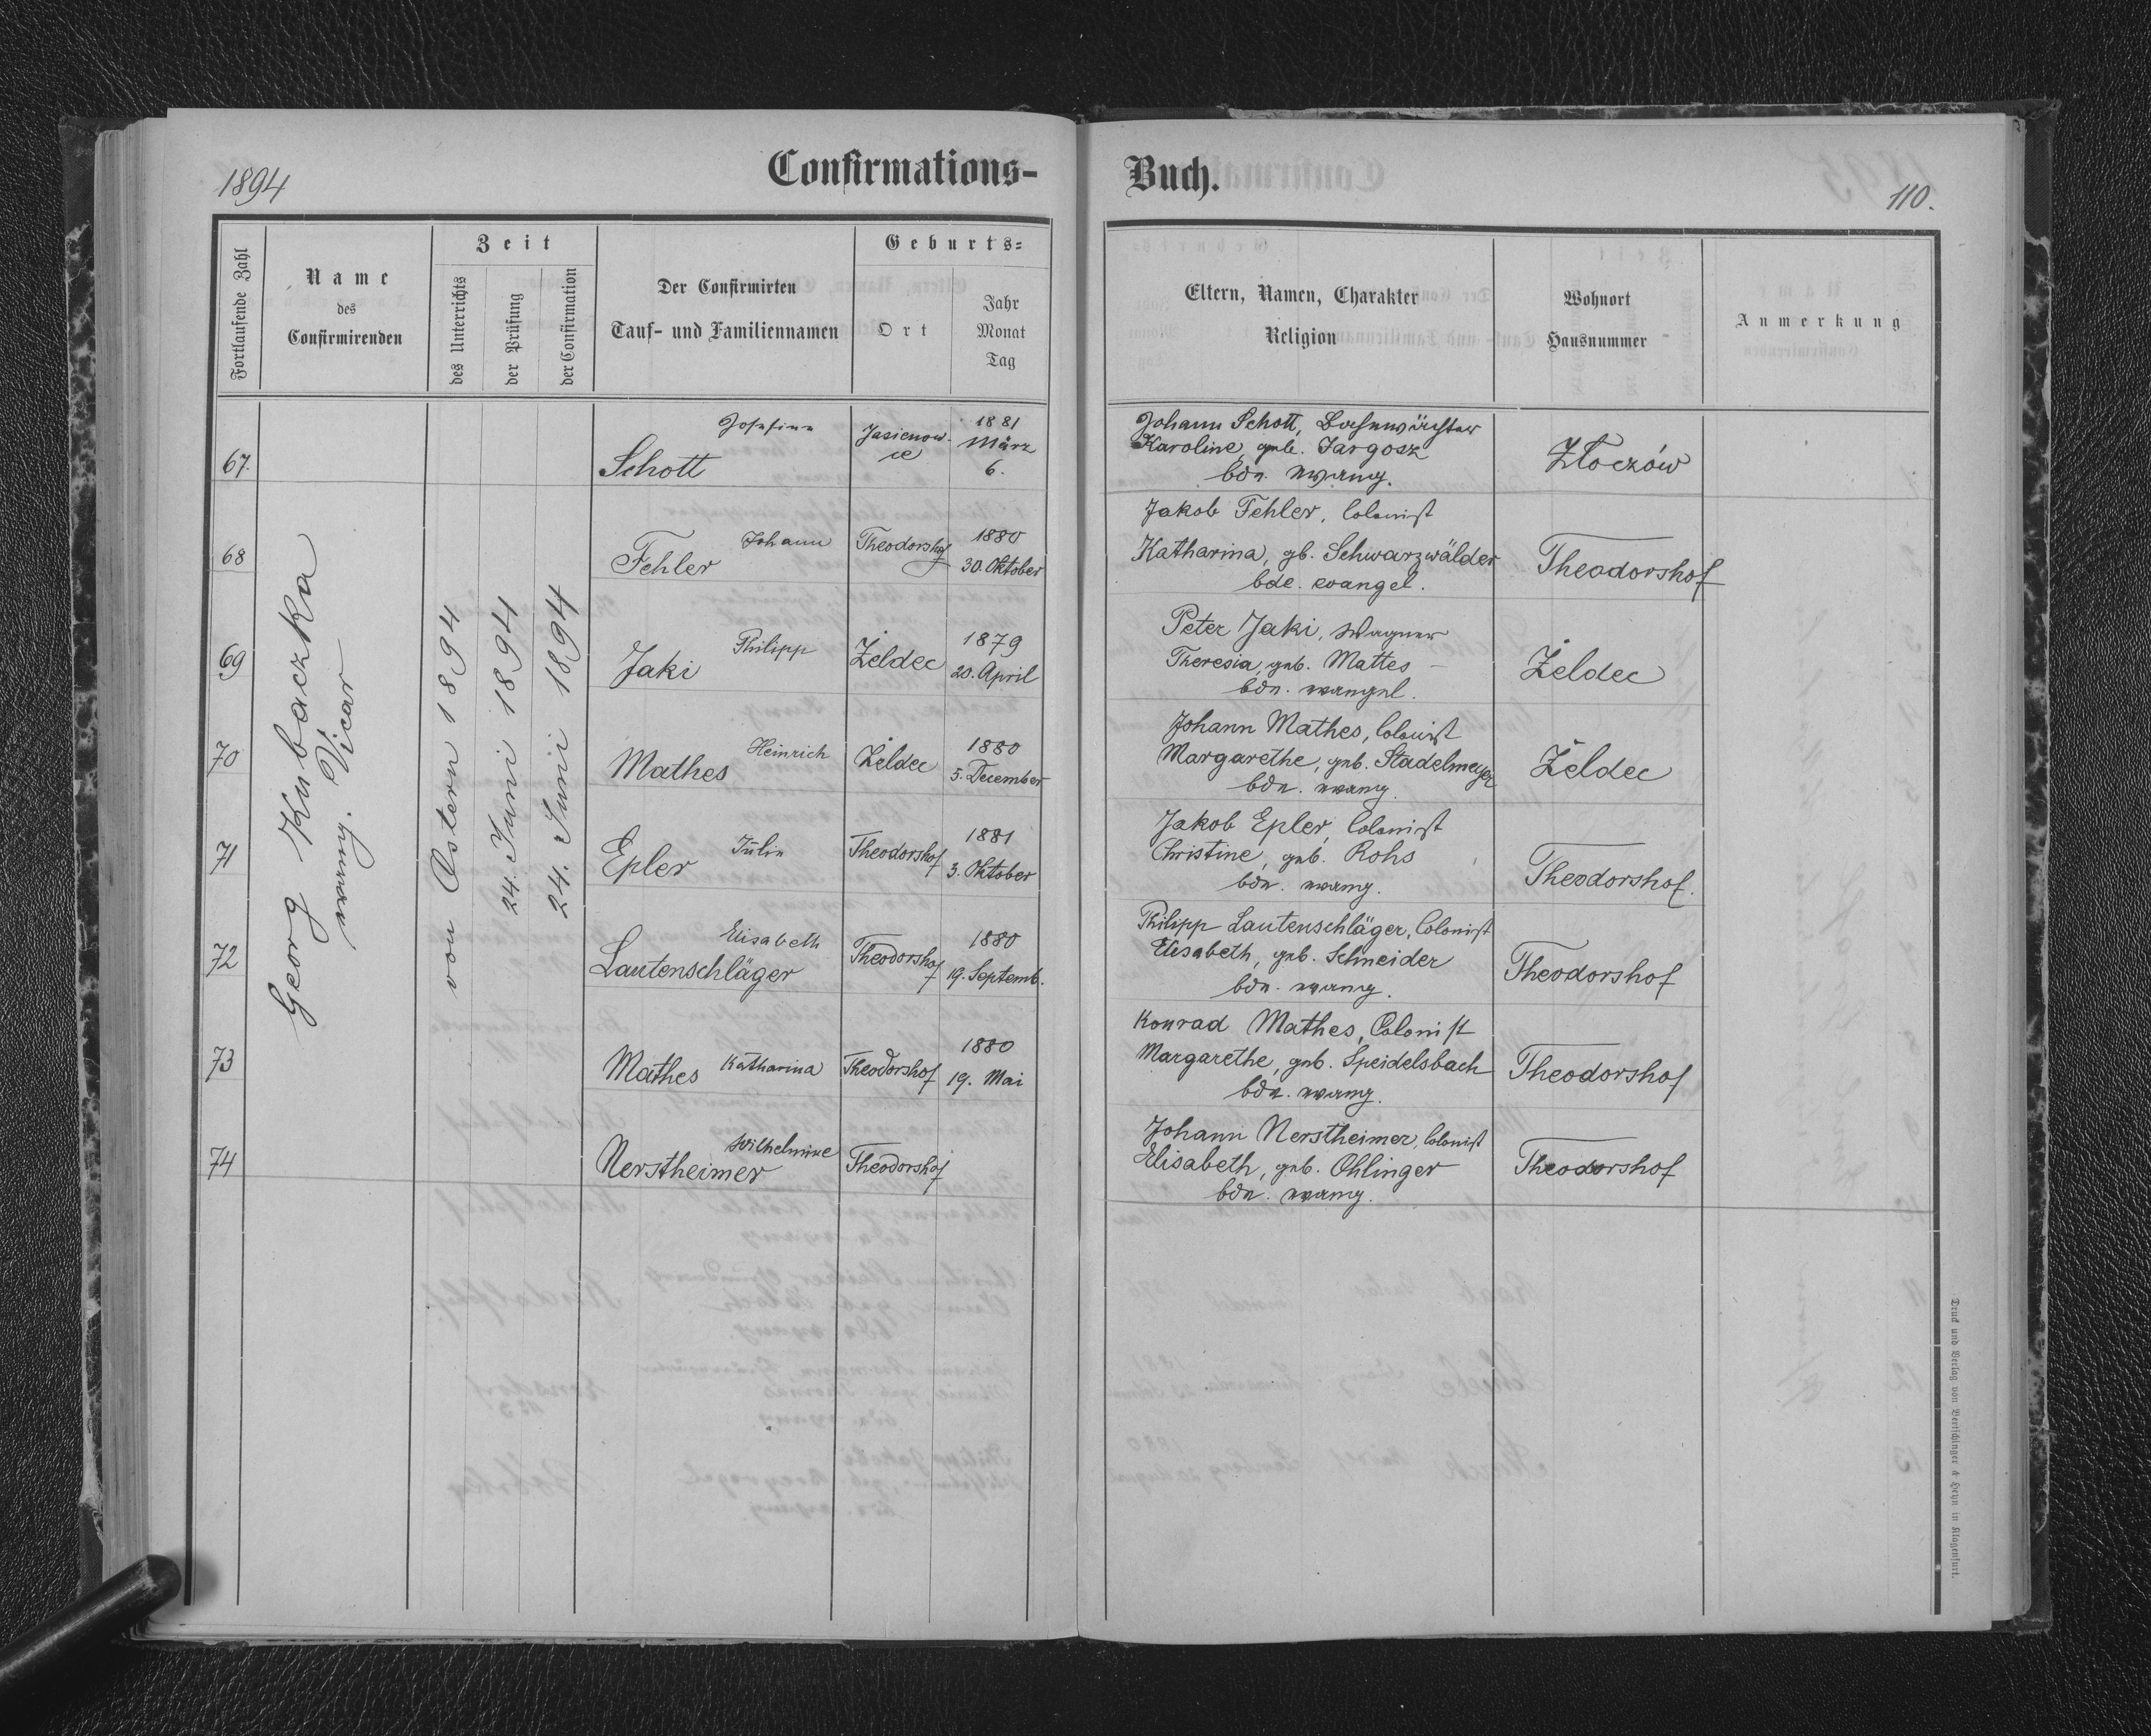 1894
Confirmations-
Buch.
110.
Fortlaufende Zahl
Name
des
Confirmirenden
Zeit
des Unterrichts
der Prüfung
der Confirmation
Der Confirmirten
Tauf- und Familiennamen
Geburts-
Ort
Jahr
Monat
Tag
Eltern, Namen, Charakter
Religion
Wohnort
Hausnummer
Anmerkung
Georg Kubaczka
evang. Vicar
von Ostern 1894
24. Juni 1894
24. Juni 1894
67.
Josefine
Schott
Jasienow-
ce
1881
März
6.
Johann Schott, Bahnwächter
Karoline, geb. Jargosz
bde. evang.
Złoczów
68
Johann
Fehler
Theodorshof
1880
30. Oktober
Jakob Fehler, Colonist
Katharina, gb. Schwarzwälder
bde. evangel.
Theodorshof
69
Philipp
Jaki
Żeldec
1879
20. April
Peter Jaki, Wagner
Theresia, geb. Mattes
bde. evangel.
Żeldec
70
Heinrich
Mathes
Żeldec
1880
5. December
Johann Mathes, Colonist
Margarethe, geb. Stadelmeyer
bde. evang.
Żeldec
71
Julie
Epler
Theodorshof
1881
3. Oktober
Jakob Epler, Colonist
Christine, geb. Rohs
bde. evang.
Theodorshof.
72
Elisabeth
Lautenschläger
Theodorshof
1880
19. Septemb.
Philipp Lautenschläger, Colonist
Elisabeth, geb. Schneider
bde. evang.
Theodorshof
73
Mathes Katharina
Theodorshof
1880
19. Mai
Konrad Mathes, Colonist
Margarethe, geb. Speidelsbach
bde. evang.
Theodorshof
74
Wilhelmine
Nerstheimer
Theodorshof
Johann Nerstheimer, Colonist
Elisabeth, geb. Ohlinger
bde. evang.
Theodorshof
Druck und Verlag von Bertschinger & Heyn in Klagenfurt.